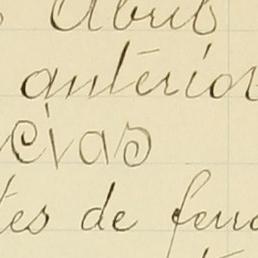 Abril
anterior
cias
tes de ferro